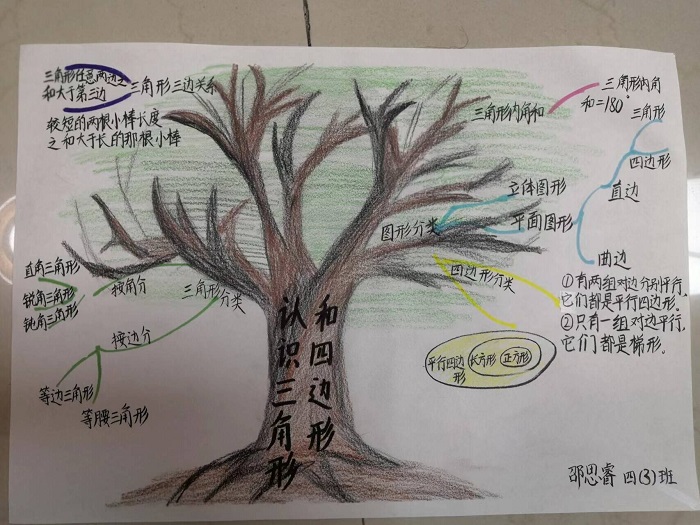 三角形任意两边之
和大于第三边
三角形三边关系
较短的两根小棒长度
之和大于长的那根小棒
三角形内角和
三角形内角
和=180°
图形分类
立体图形
平面图形
直边
三角形
四边形
曲边
四边形分类
①有两组对边分别平行,
它们都是平行四边形.
②只有一组对边平行,
它们都是梯形.
平行四边
形
长方形
正方形
三角形分类
按角分
直角三角形
锐角三角形
钝角三角形
按边分
等边三角形
等腰三角形
认识三角形
和四边形
邵思睿 四(3)班